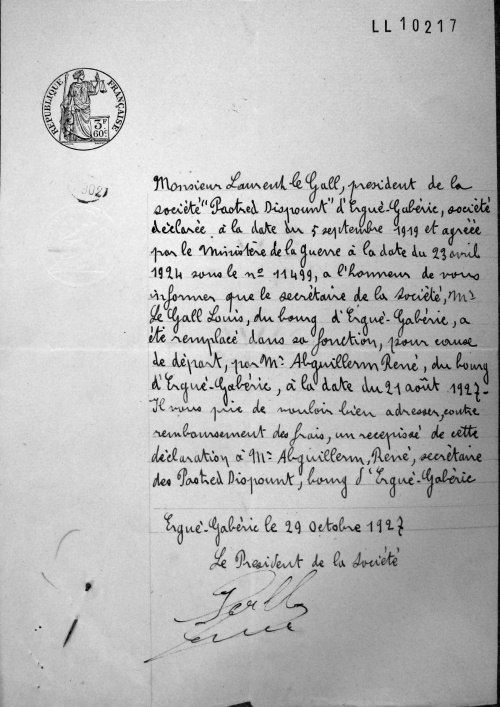 LL10217
RÉPUBLIQUE FRANÇAISE
3F
60c
Monsieur Laurent le Gall, president de la
société "Paotred Dispount" d'Ergué-Gabéric, société
déclarée à la date du 5 septembre 1919 et agréée
par le Ministère de la Guerre à la date du 23 avril
1924 sous le n° 11499, a l'honneur de vous
informer que le secrétaire de la société, Mr
Le Gall Louis, du bourg d'Ergué-Gabéric, a
été remplacé dans sa fonction, pour cause
de départ, par Mr Abguillerm René, du bourg
d'Ergué-Gabéric, à la date du 21 août 1927-
Il vous prie de vouloir bien adresser, contre
remboursement des frais, un recepissé de cette
déclaration à Mr Abguillerm, René, secrétaire
des Paotred Dispount, bourg d'Ergué-Gabéric
Ergué-Gabéric le 29 Octobre 1927
Le President de la société